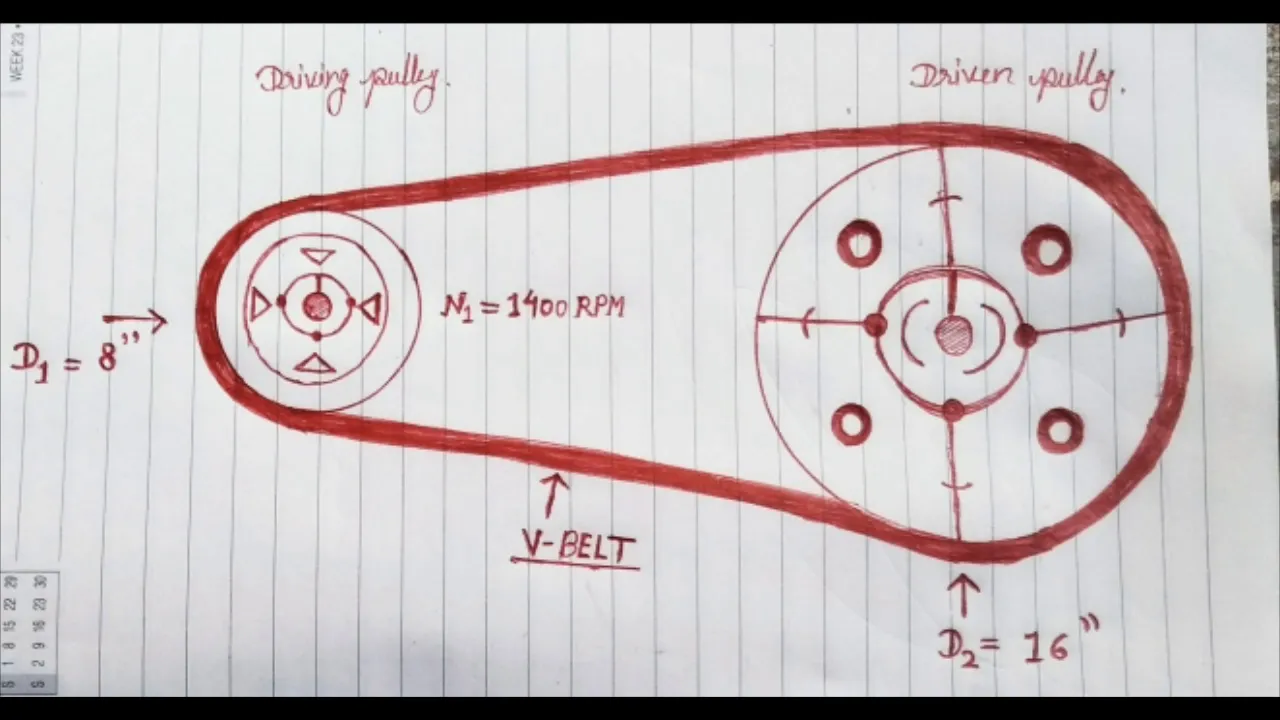 WEEK 23 •
Driving pulley.
Driven pulley.
N₁ = 1400 RPM
D₁ = 8"
V-BELT
D₂ = 16"
S 1 8 15 22 29
S 2 9 16 23 30